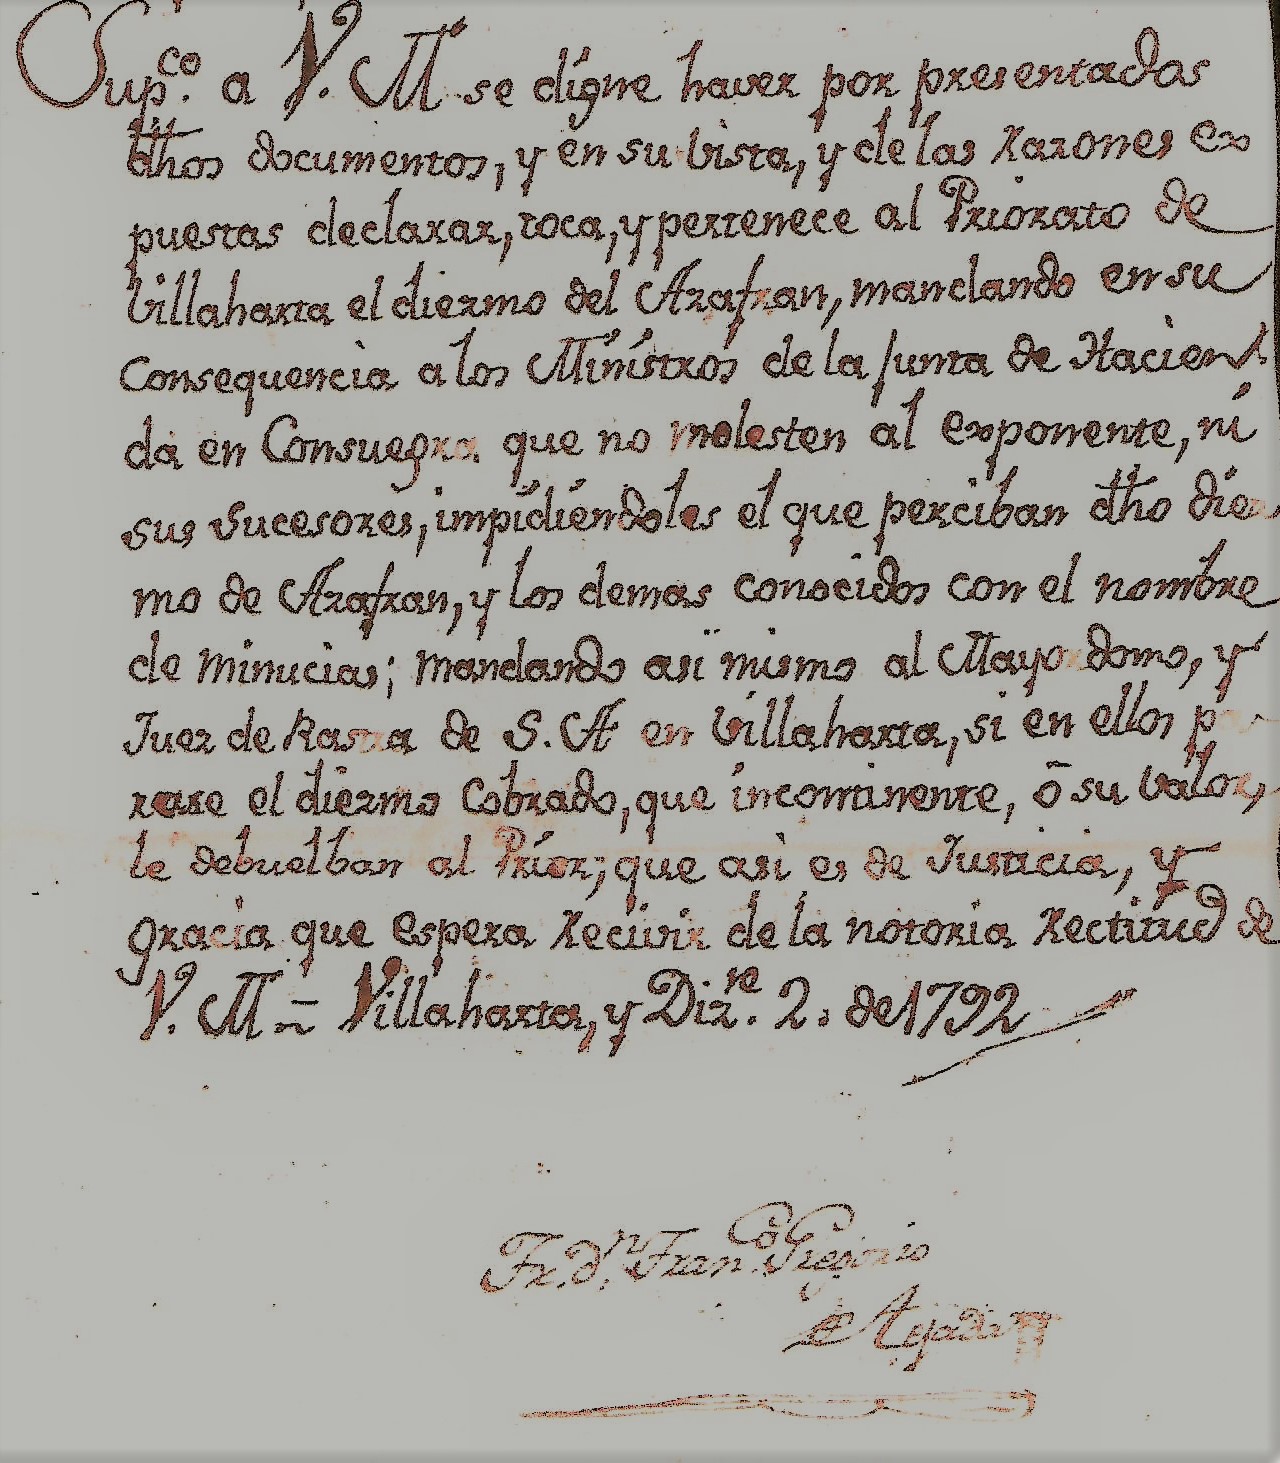 Sup.co a V. M. se digne haver por presentados
dhos documentos, y en su vista, y de las razones ex
puestas declarar, toca, y pertenece al Priorato de
Villaharta el diezmo del Azafran, mandando en su
Consequencia a los Ministros de la Junta de Hacien
da en Consuegra que no molesten al exponente, ni
sus Sucesores, impidiendoles el que perciban dho diez
mo de Azafran, y los demas conocidos con el nombre
de minucias; mandando asi mismo al Mayordomo, y
Juez de Rastra de S. A en Villaharta, si en ellos pa
rare el diezmo Cobrado, que incontinente, ō su valor,
le debuelban al Prior; que asi es de Justicia, y
gracia que espera recivir de la notoria rectitud de
V. M= Villaharta, y Diz.re 2. de 1792
Fr. d.n Fran.co Gregorio
de